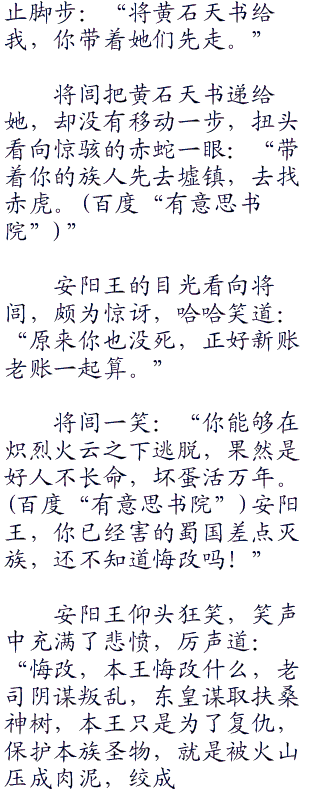 止脚步：“将黄石天书给
我，你带着她们先走。”
将闾把黄石天书递给
她，却没有移动一步，扭头
看向惊骇的赤蛇一眼：“带
着你的族人先去墟镇，去找
赤虎。(百度“有意思书
院”)”
安阳王的目光看向将
闾，颇为惊讶，哈哈笑道：
“原来你也没死，正好新账
老账一起算。”
将闾一笑：“你能够在
炽烈火云之下逃脱，果然是
好人不长命，坏蛋活万年。
(百度“有意思书院”)安阳
王，你已经害的蜀国差点灭
族，还不知道悔改吗！”
安阳王仰头狂笑，笑声
中充满了悲愤，厉声道：
“悔改，本王悔改什么，老
司阴谋叛乱，东皇谋取扶桑
神树，本王只是为了复仇，
保护本族圣物，就是被火山
压成肉泥，绞成